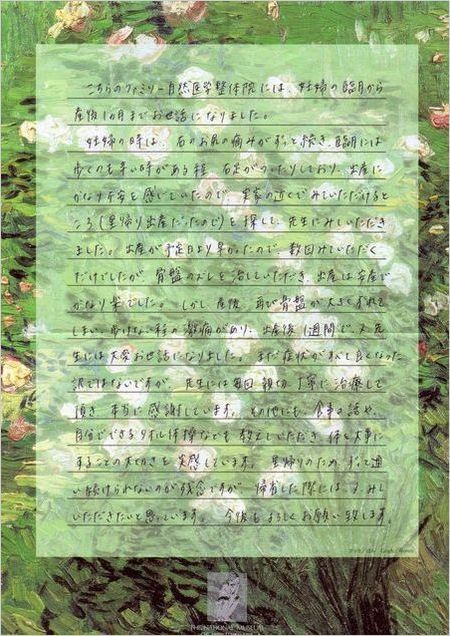 こちらのファミリー自然医学整体院には、妊婦の臨月から
産後1ヵ月までお世話になりました。
妊婦の時は、右のお尻の痛みがずっと続き、臨月には
歩くのも辛い時がある程、右足がつったりしており、出産に
かなり不安を感じていたので、実家の近くでみていただけると
ころ(里帰り出産だったので)を探して、先生にみていただき
ました。出産が予定日より早かったので、数回みていただく
だけでしたが、骨盤のズレを治していただき、出産は安産で
かなり楽でした。しかし、産後、再び骨盤が大きくずれて
しまい、歩けない程の激痛があり、出産後1週間で、又先
生には大変お世話になりました。まだ症状がすべて良くなった
訳ではないですが、先生には毎回親切、丁寧に治療して
頂き、本当に感謝しています。その他にも、食事の話や、
自分でできるタオル体操なども教えていただき、体を大事に
することの大切さを実感しています。里帰りのため、ずっと通
い続けられないのが残念ですが、帰省した際には、みし
いただきたいと思っています。今後もよろしくお願い致します。
THE NATIONAL MUSEUM